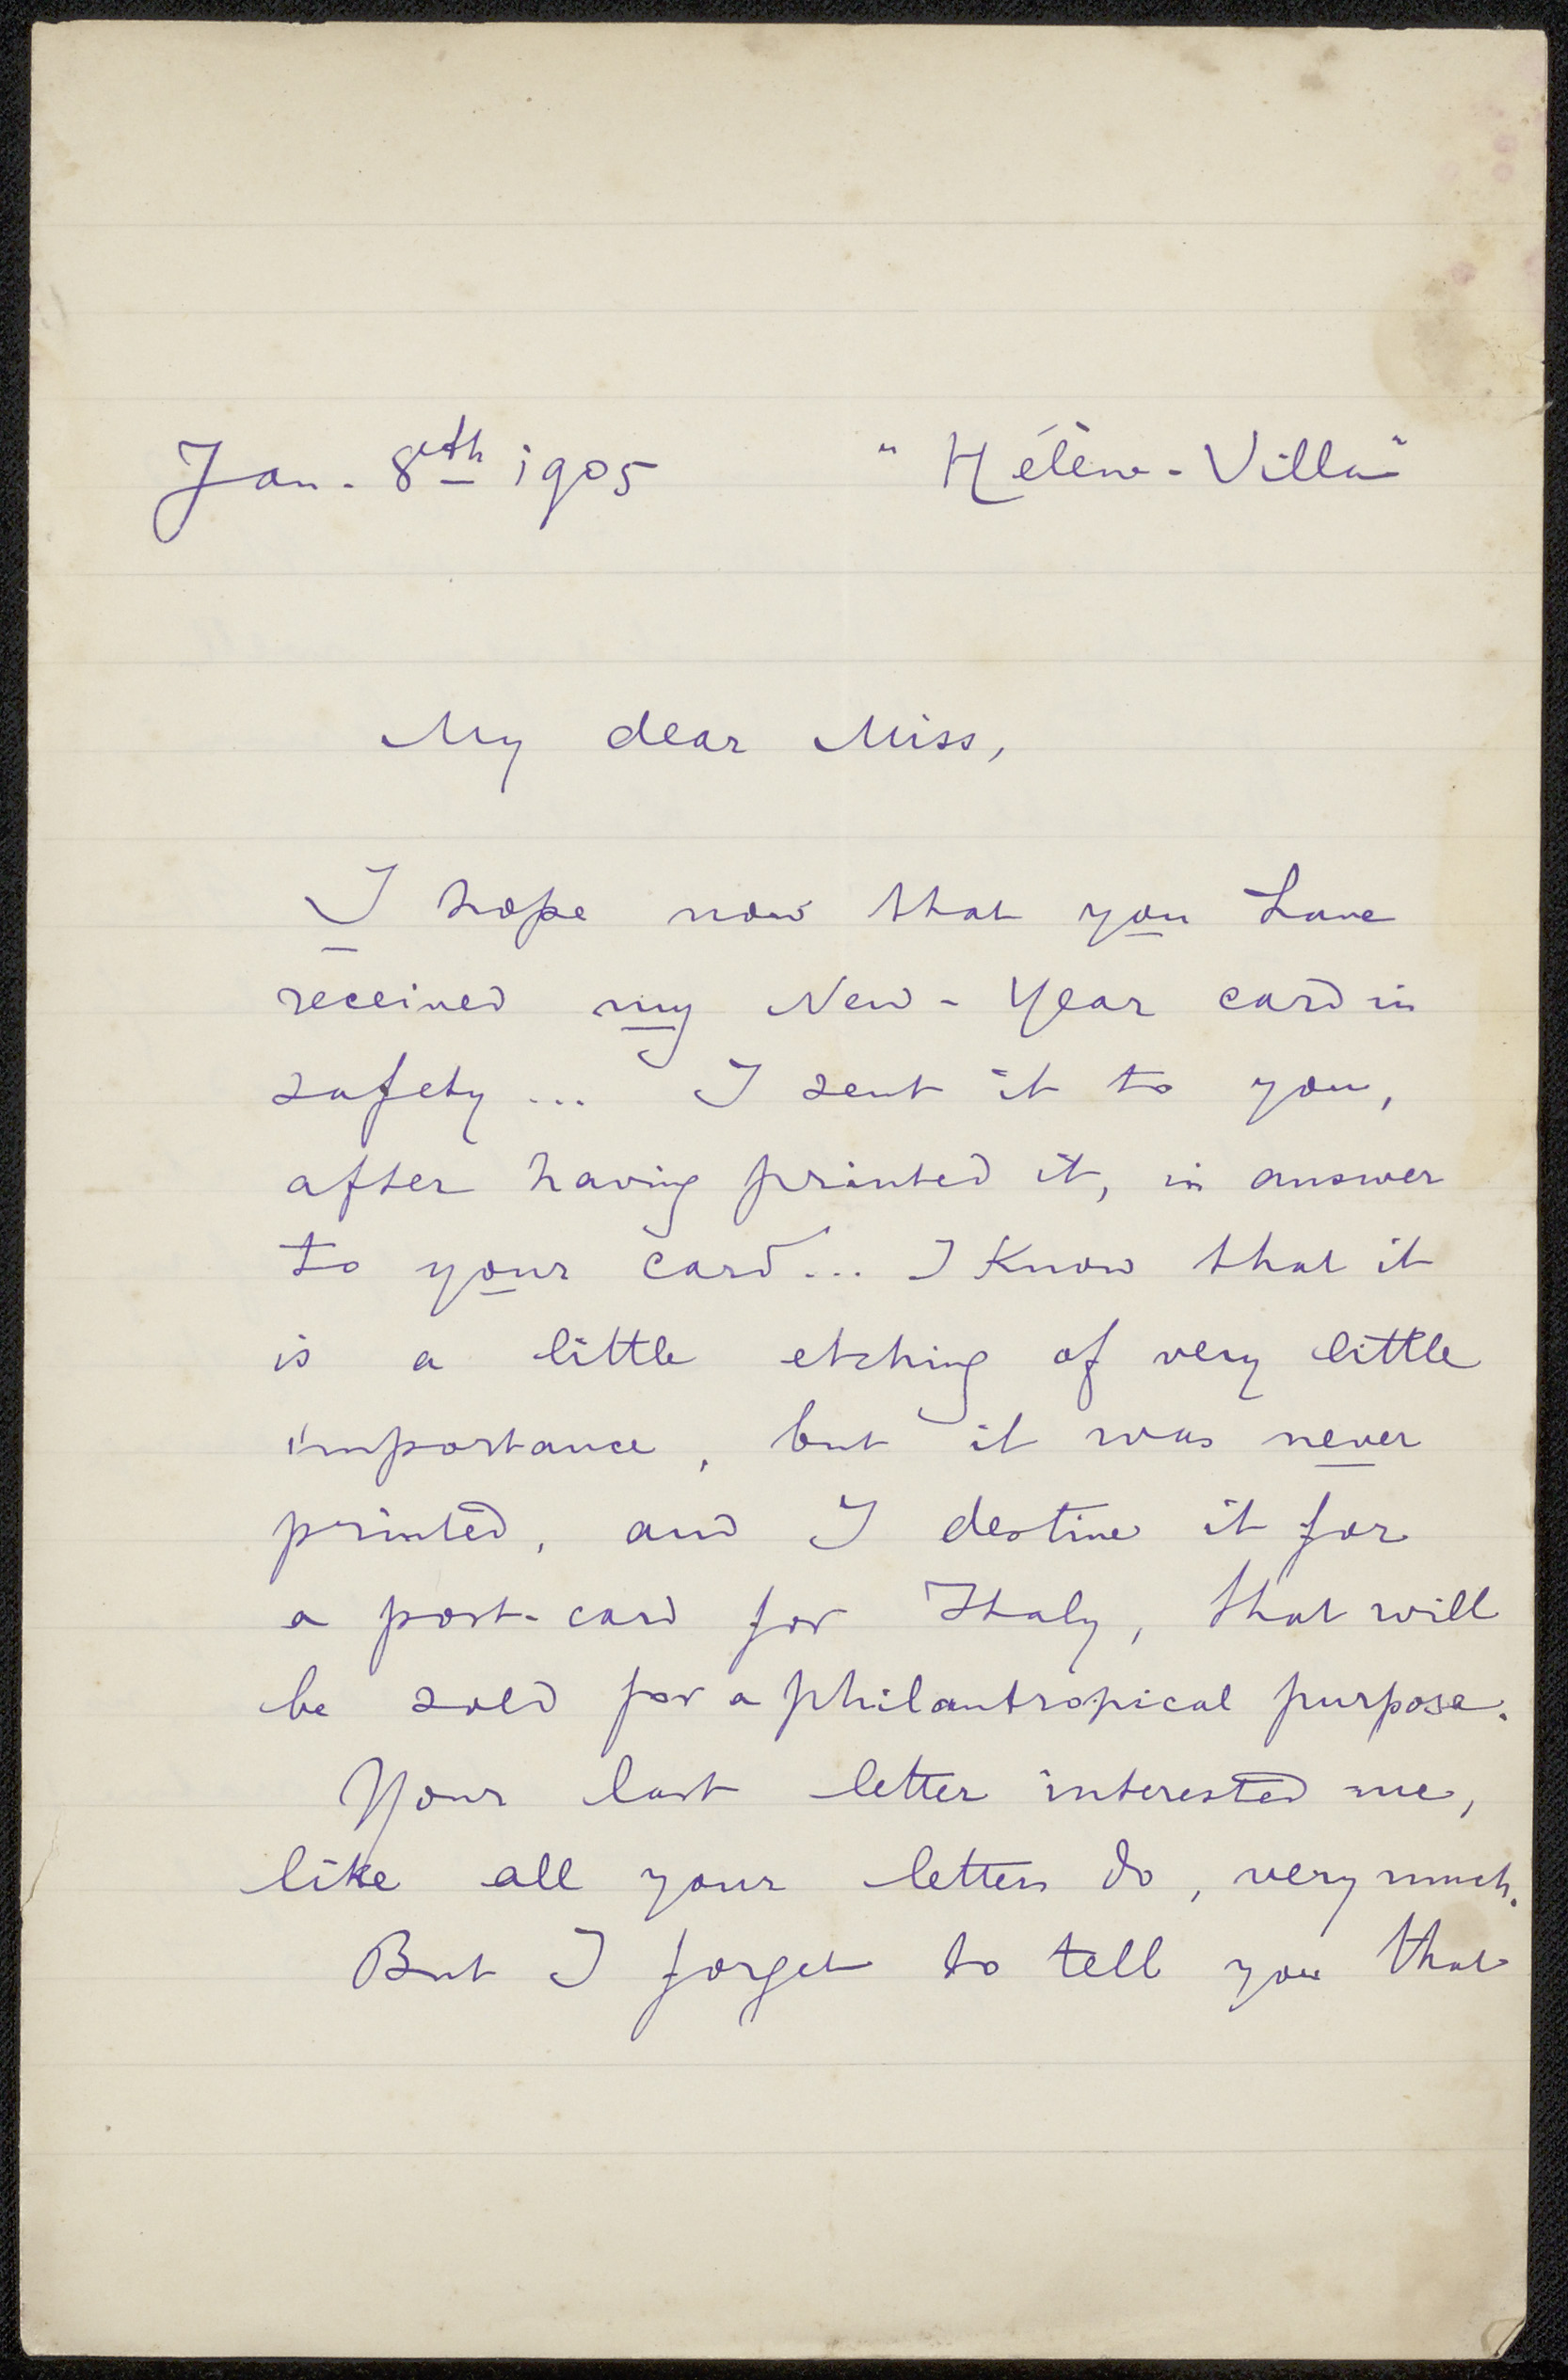 Jan. 8th 1905 "Hélène-Villa"
My dear Miss,
I hope now that you have
received my New-Year card in
safety... I sent it to you,
after having printed it, in answer
to your card... I know that it
is a little etching of very little
importance, but it was never
printed, and I destine it for
a post-card for Italy, that will
be sold for a philantropical purpose.
Your last letter interested me,
like all your letters do, very much.
But I forget to tell you that